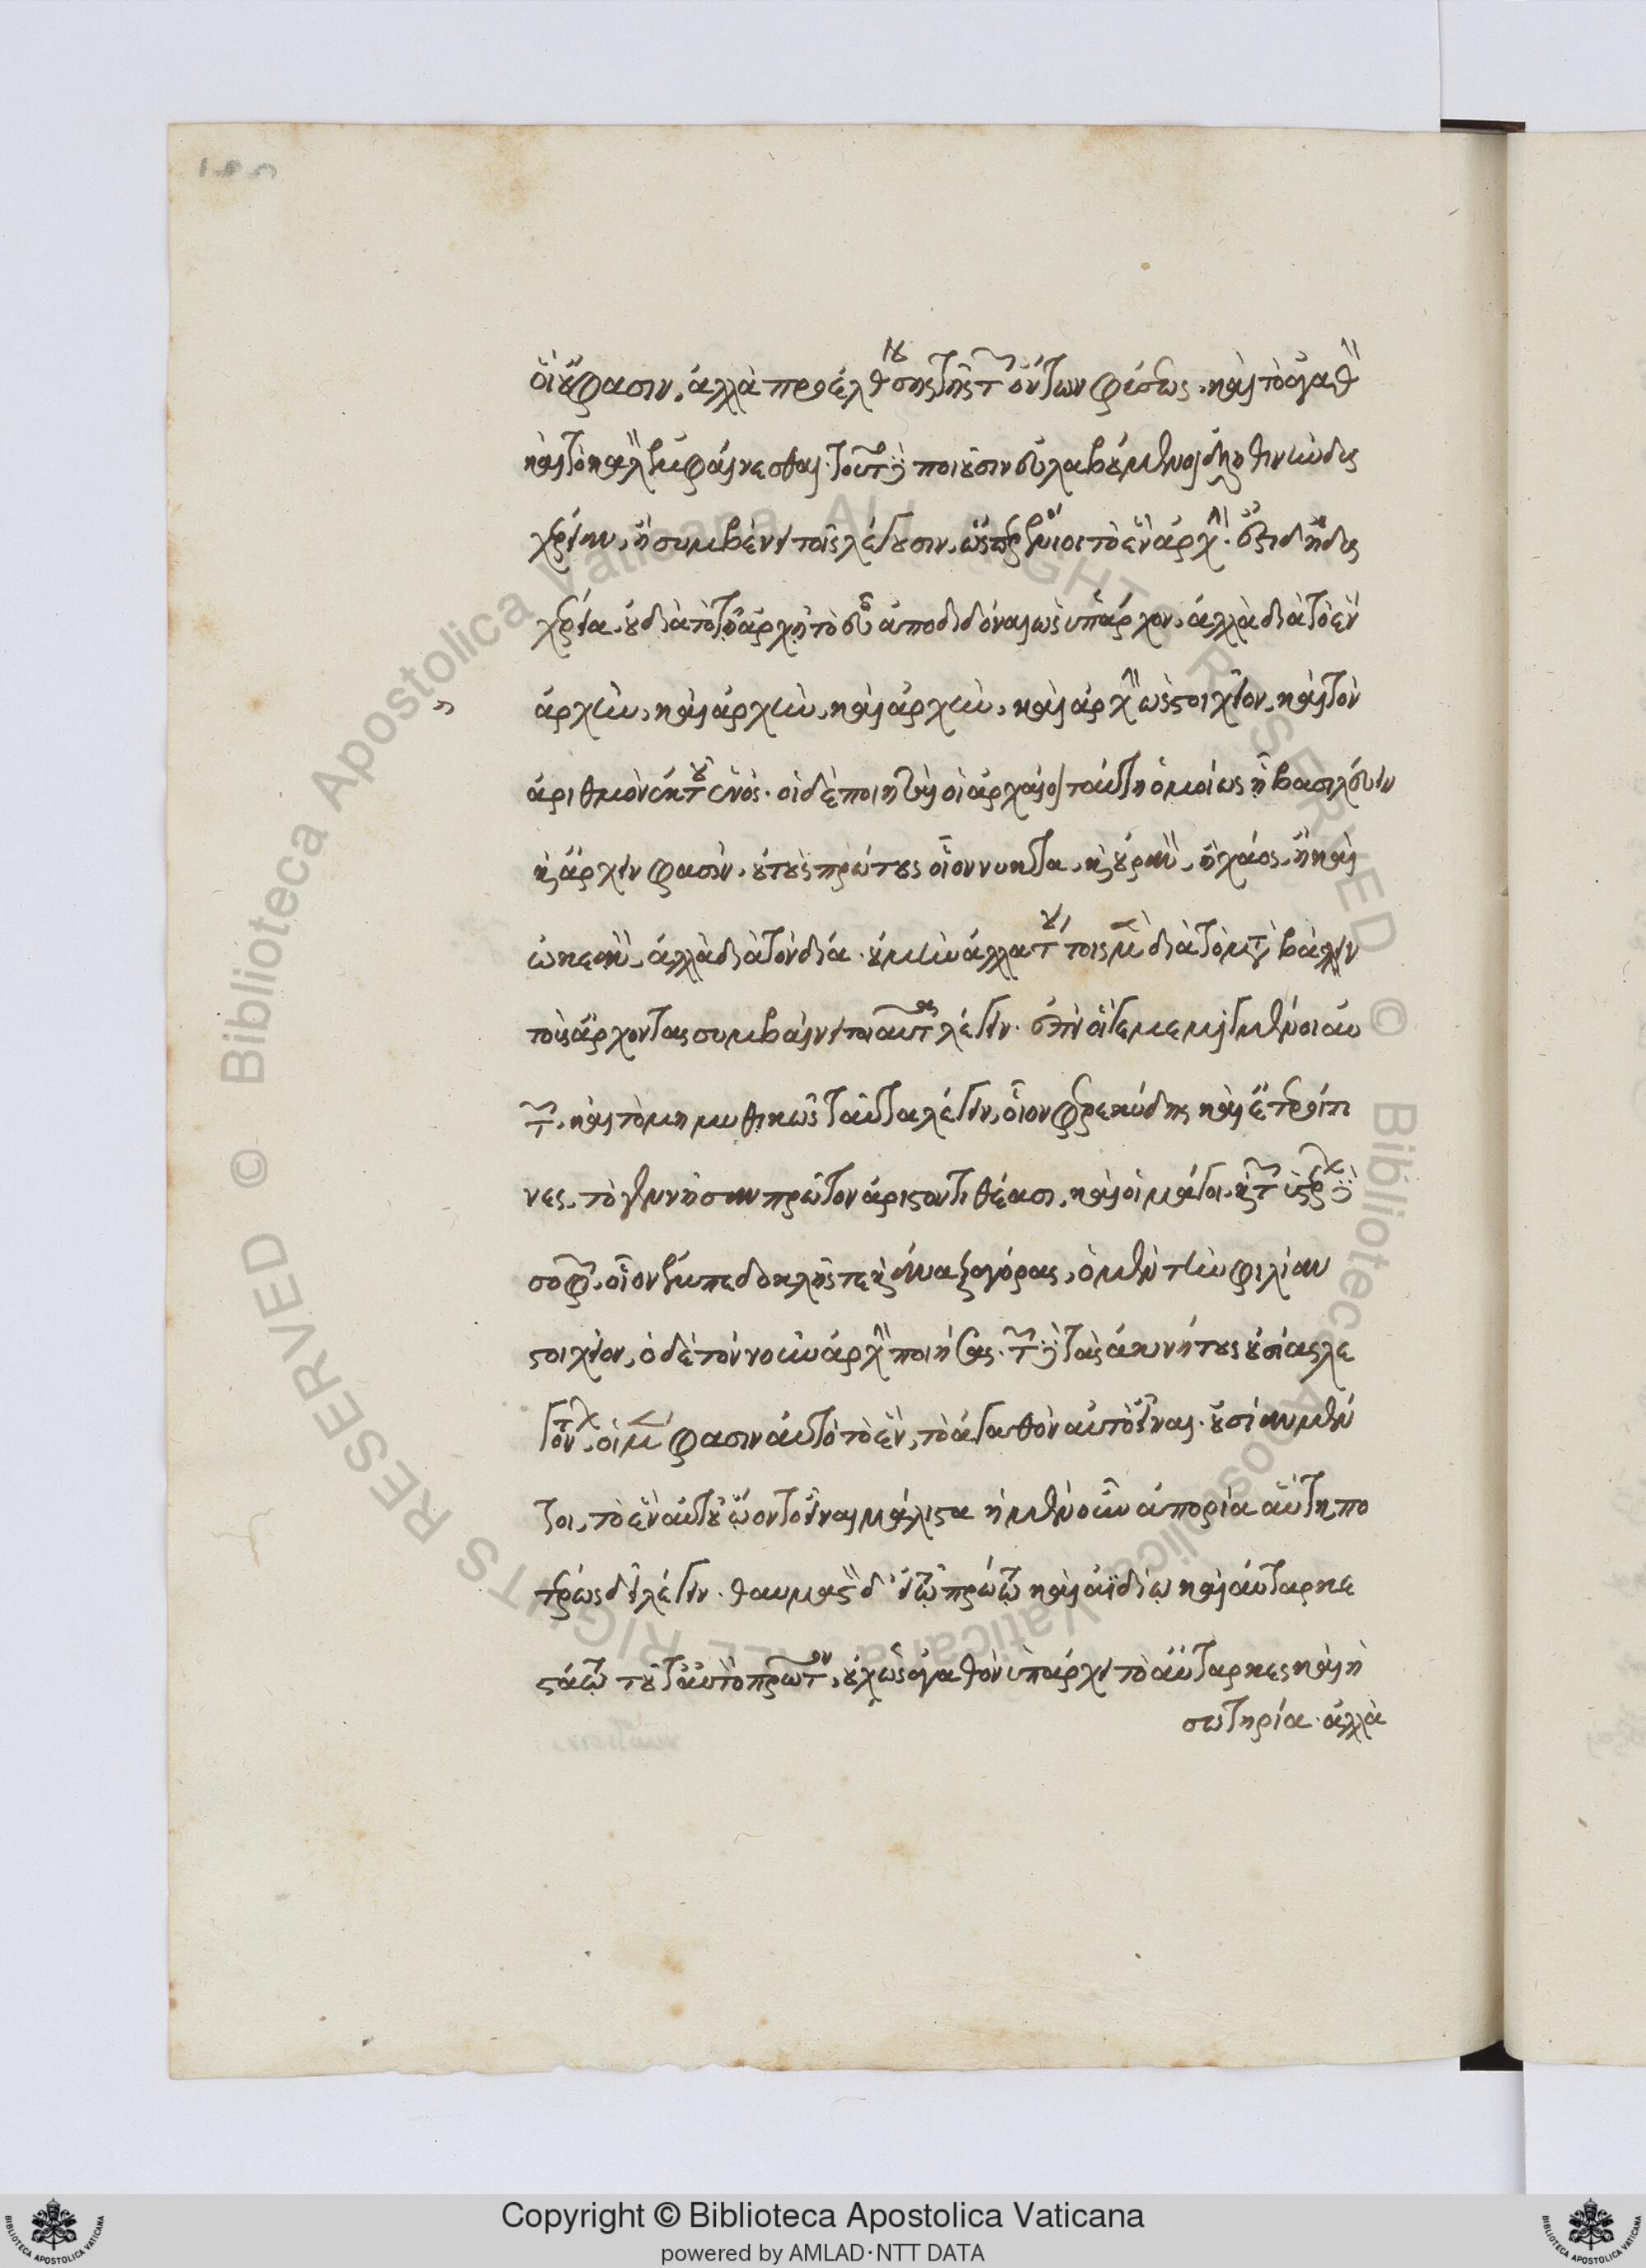 οἱ οὔ φασιν, ἀλλὰ προελθούσης τῆς τῶν ὄντων φύσεως, καὶ τὸ ἀγαθὸν
καὶ τὸ καλὸν ἐμφαίνεσθαι. τοῦτο δὲ ποιοῦσιν εὐλαβούμενοι ἀληθινὴν δυσ
χέρειαν, ἣ συμβαίνει τοῖς λέγουσιν, ὥσπερ ἔνιοι τὸ ἓν ἀρχήν. ἔστι δὲ ἡ δυσ
χέρεια, οὐ διὰ τὸ τῇ ἀρχῇ τὸ εὖ ἀποδιδόναι ὡς ὑπάρχον, ἀλλὰ διὰ τὸ ἓν
ἀρχὴν, καὶ ἀρχὴν, καὶ ἀρχὴν, καὶ ἀρχὴν ὡς στοιχεῖον, καὶ τὸν
ἀριθμὸν ἐκ τοῦ ἑνός. οἱ δὲ ποιηταὶ οἱ ἀρχαῖοι ταύτῃ ὁμοίως ᾗ βασιλεύειν
καὶ ἄρχειν φασὶν, οὐ τοὺς πρώτους οἷον νύκτα, καὶ οὐρανὸν, ἢ χάος, ἢ καὶ
ὠκεανὸν, ἀλλὰ διὰ τὸν δία. οὐ μὴν ἀλλὰ τούτοις μὲν διὰ τὸ μεταβάλλειν
τοὺς ἄρχοντας συμβαίνει τοιαῦτα λέγειν. ἐπεὶ οἵ γε μεμιγμένοι αὐ
τῶν, καὶ τὸ μὴ μυθικῶς ταῦτα λέγειν, οἷον φερεκύδης καὶ ἕτεροί τι
νες, τὸ γεννῆσαν πρῶτον ἄριστον τιθέασι, καὶ οἱ μάγοι, καὶ τῶν ὑστέρων δὲ
σοφῶν, οἷον ἐμπεδοκλῆς τε καὶ ἀναξαγόρας, ὁ μὲν τὴν φιλίαν
στοιχεῖον, ὁ δὲ τὸν νοῦν ἀρχὴν ποιήσας. τῶν δὲ τὰς ἀκινήτους οὐσίας λε
γόντων, οἱ μέν φασιν αὐτὸ τὸ ἓν, τὸ ἀγαθὸν αὐτὸ εἶναι. οὐσίαν μέν
τοι, τὸ ἓν αὐτοῦ ᾤοντο εἶναι μάλιστα ἡ μὲν οὖν ἀπορία αὕτη πο
τέρως δεῖ λέγειν. θαυμαστὸν δ' εἰ τῷ πρώτῳ καὶ ἀϊδίῳ καὶ αὐταρκε
στάτῳ τοῦτ' αὐτὸ πρῶτον, οὐχ ὡς ἀγαθὸν ὑπάρχει τὸ αὔταρκες καὶ ἡ
σωτηρία. ἀλλὰ
Copyright © Biblioteca Apostolica Vaticana
powered by AMLAD·NTT DATA